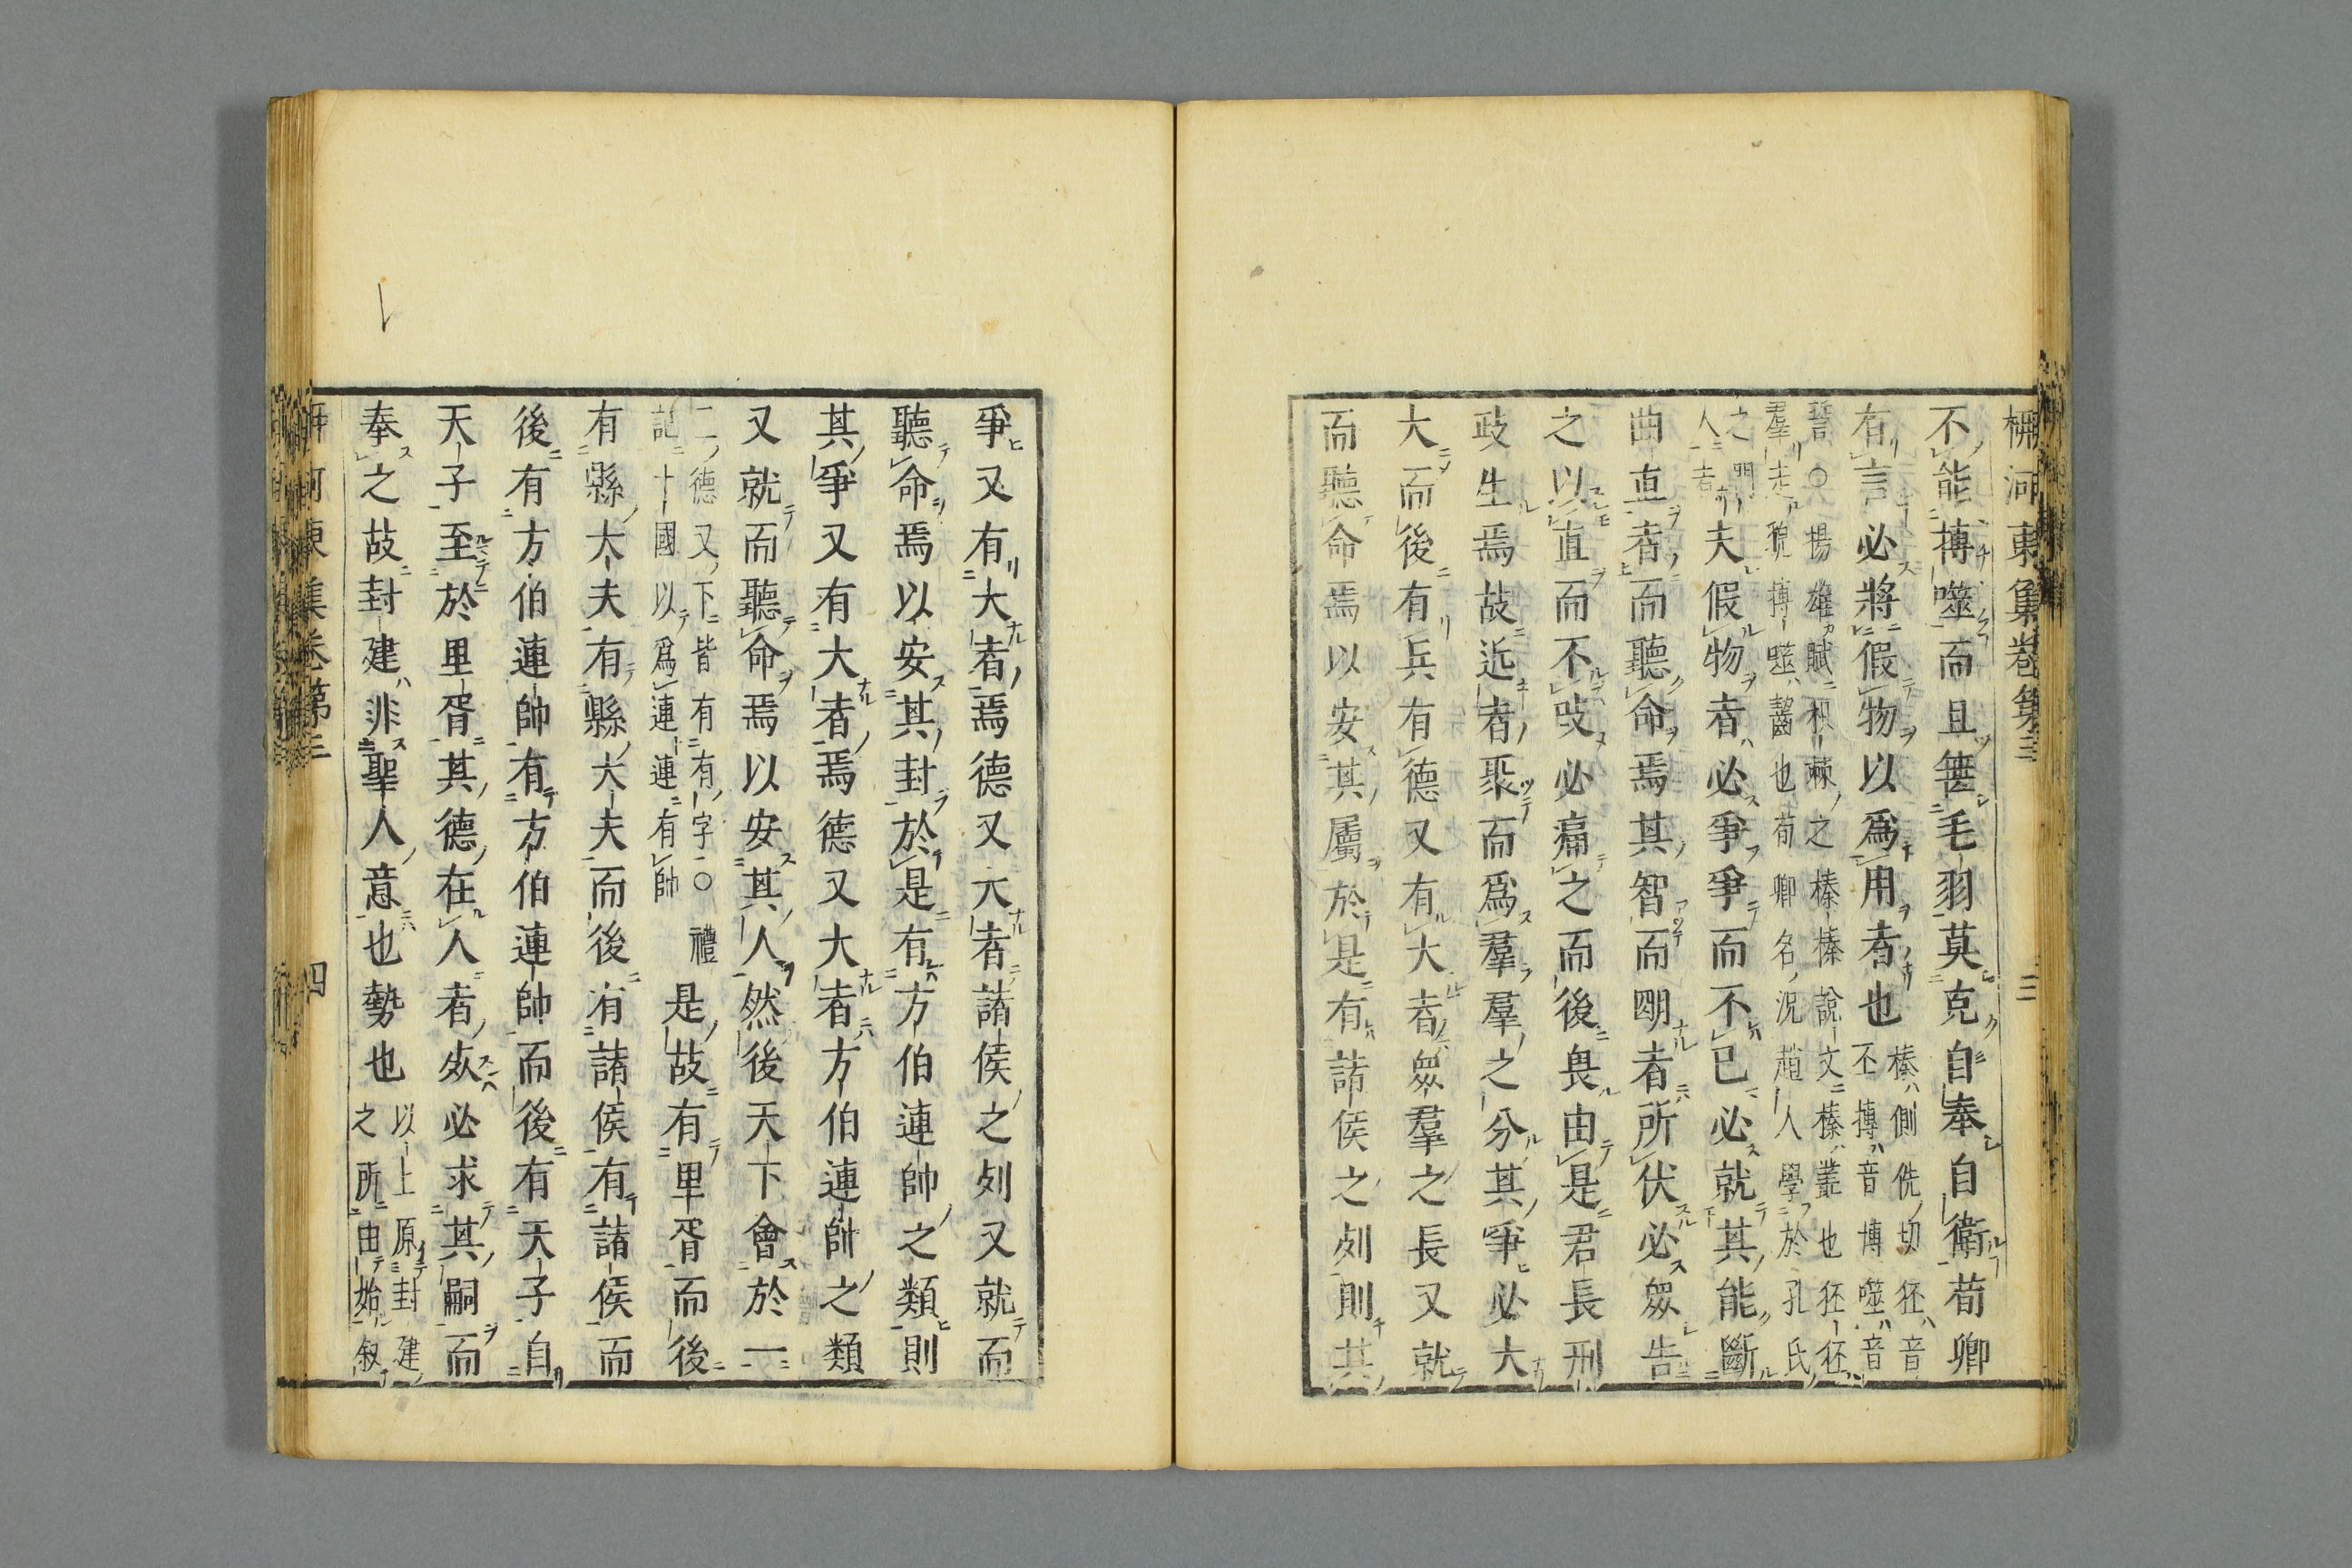 柳河東集卷第三
三
不能搏噬而且無毛羽莫克自奉自衛荀卿
有言必將假物以爲用者也
榛側侁切狉音
丕搏音博噬音
誓○揚雄賦枳棘之榛榛說文榛叢也狉狉
羣走貌搏噬齧也荀卿名況趙人學於孔氏
之門
人者
夫假物者必爭爭而不已必就其能斷
曲直者而聽命焉其智而明者所伏必衆告
之以直而不攺必痛之而後畏由是君長刑
政生焉故近者聚而爲羣羣之分其爭必大
大而後有兵有德又有大者衆羣之長又就
而聽命焉以安其屬於是有諸侯之列則其
爭又有大者焉德又大者諸侯之列又就而
聽命焉以安其封於是有方伯連帥之類則
其爭又有大者焉德又大者方伯連帥之類
又就而聽命焉以安其人然後天下會於一
一德又下皆有有字○禮
記十國以爲連連有帥
是故有里胥而後
有縣大夫有縣大夫而後有諸侯有諸侯而
後有方伯連帥有方伯連帥而後有天子自
天子至於里胥其德在人者死必求其嗣而
奉之故封建非聖人意也勢也
以上原封建
之所由始叙
河東集卷第三
四